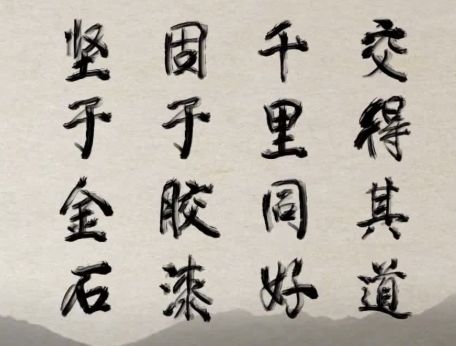 交得其道
千里同好
固于胶漆
坚于金石